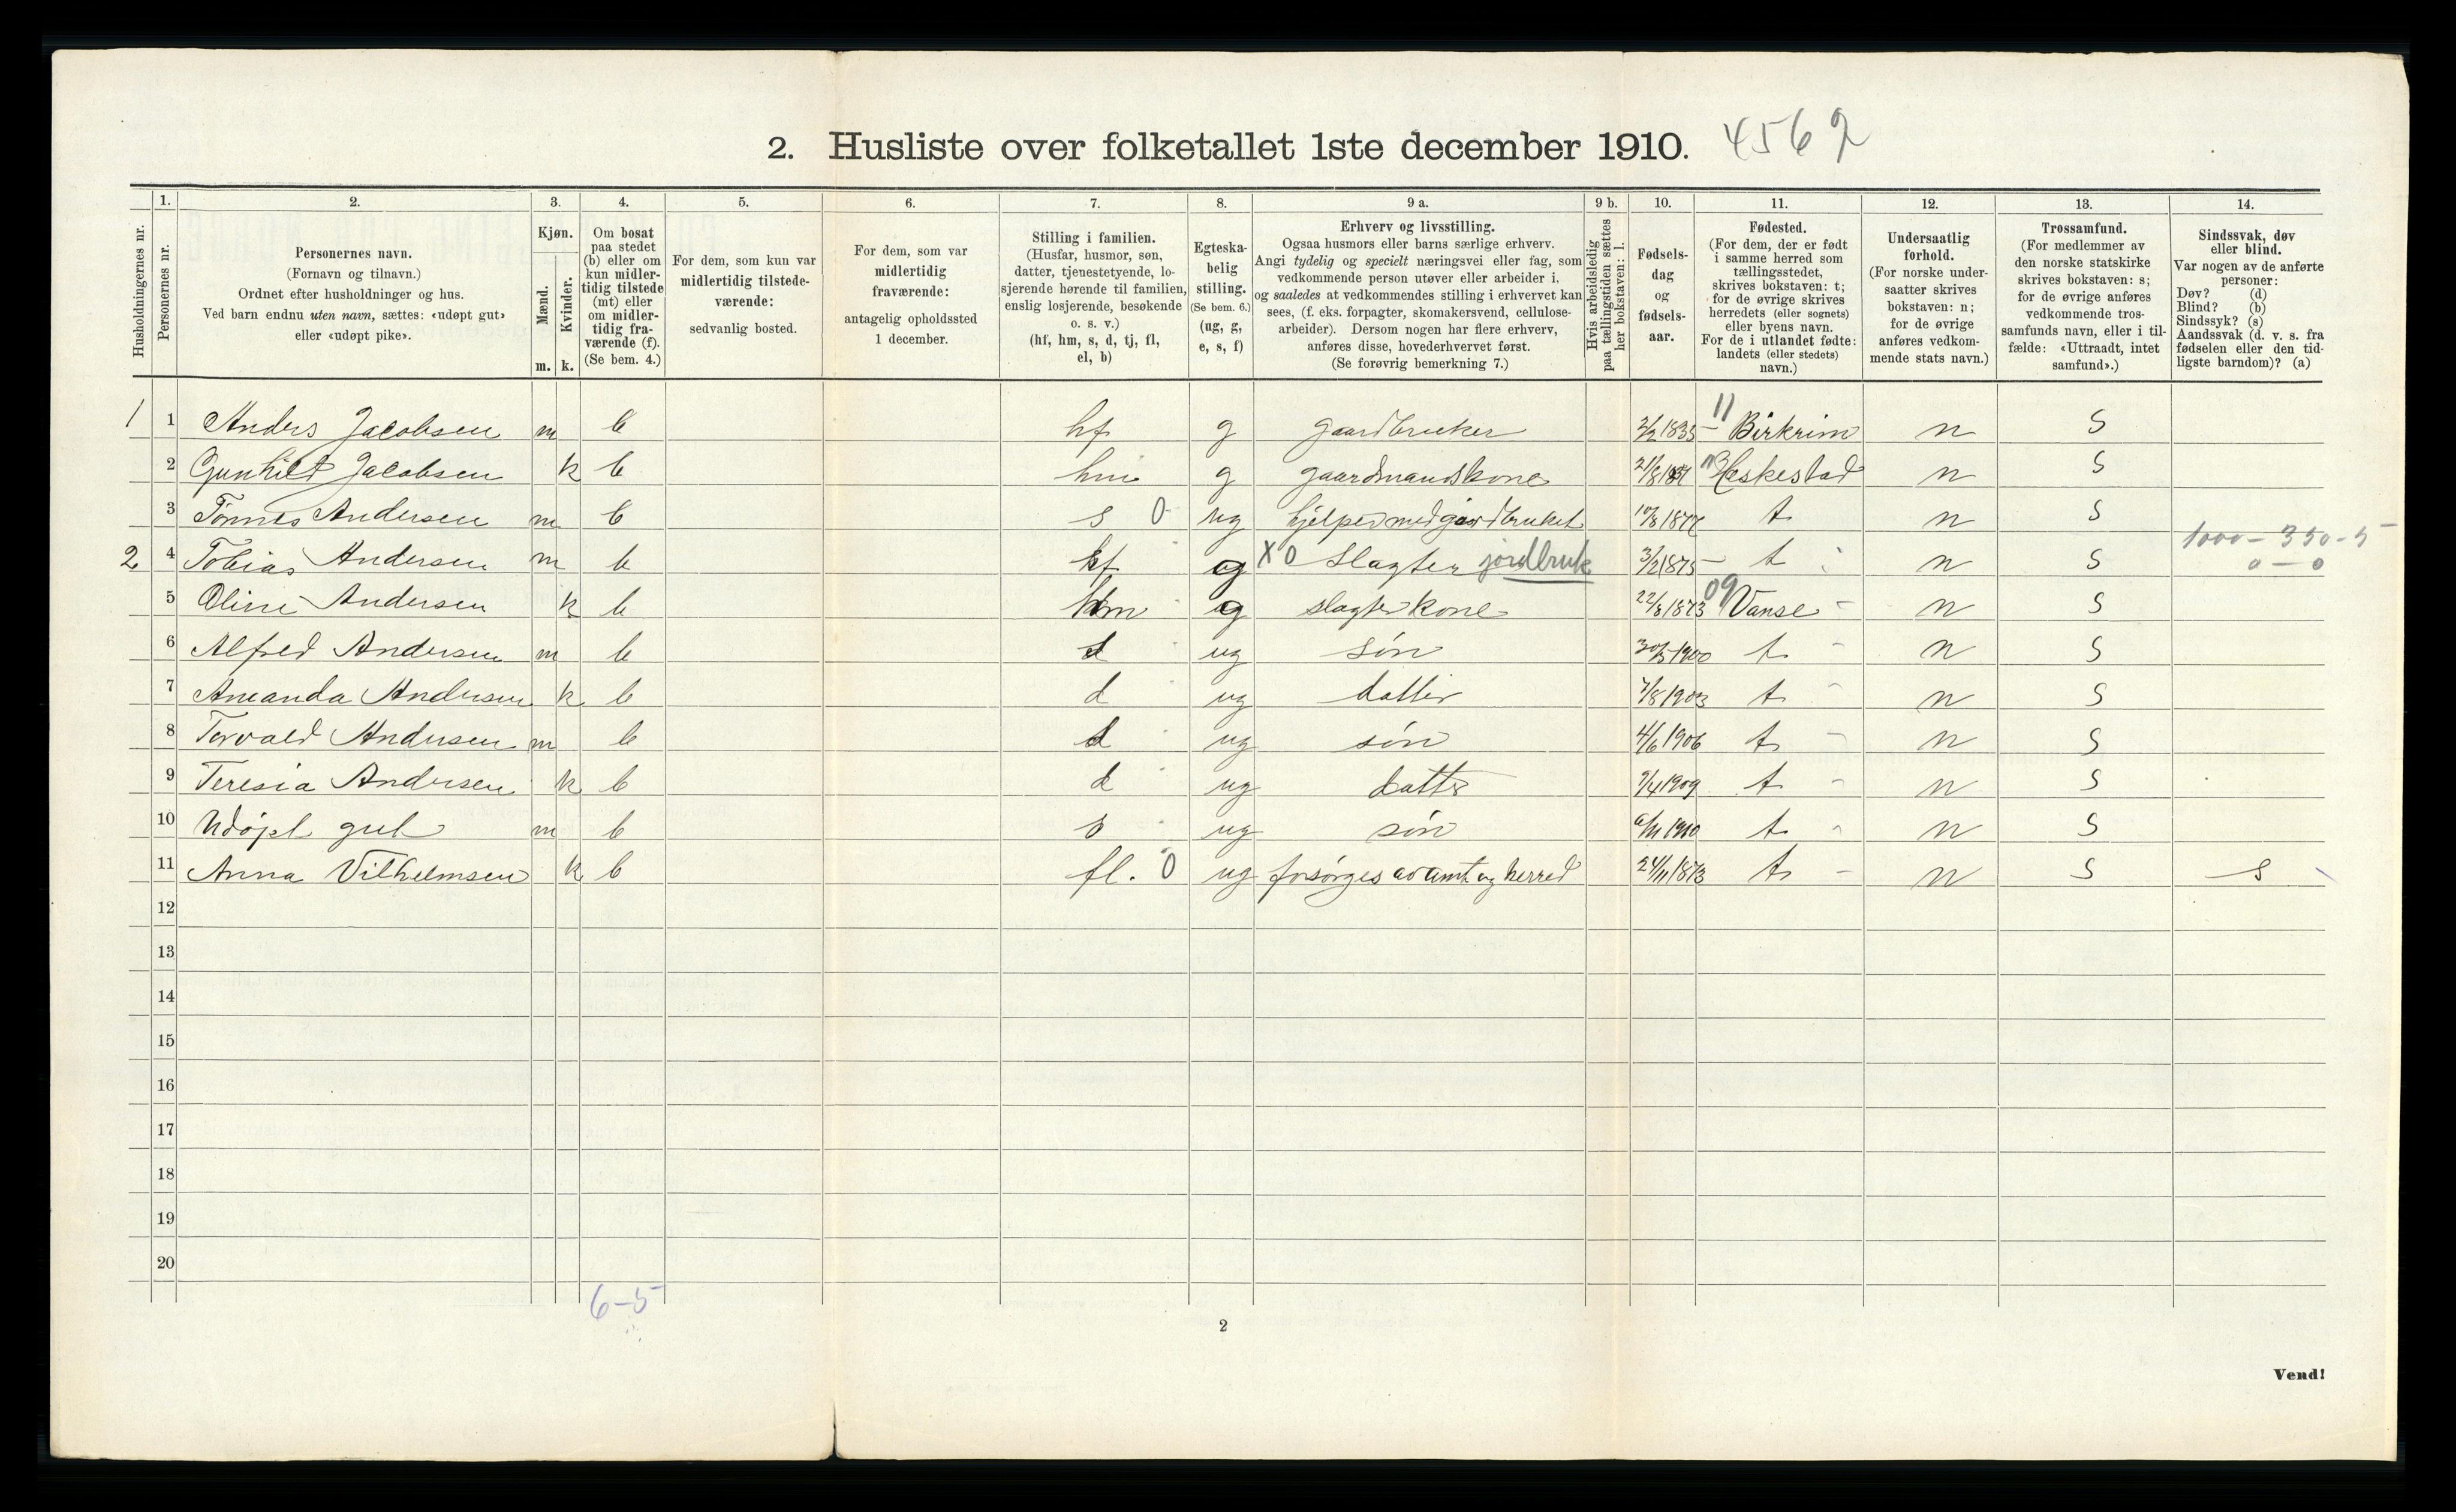 2. Husliste over folketallet 1ste december 1910. 4562
Husholdningernes nr.
1. Personernes nr.
2. Personernes navn. (Fornavn og tilnavn.) Ordnet efter husholdninger og hus. Ved barn endnu uten navn, sættes: «udøpt gut» eller «udøpt pike».
3. Kjøn. Mænd. m. Kvinder. k.
4. Om bosat paa stedet (b) eller om kun midlertidig tilstede (mt) eller om midlertidig fraværende (f). (Se bem. 4.)
5. For dem, som kun var midlertidig tilstedeværende: sedvanlig bosted.
6. For dem, som var midlertidig fraværende: antagelig opholdssted 1 december.
7. Stilling i familien. (Husfar, husmor, søn, datter, tjenestetyende, losjerende hørende til familien, enslig losjerende, besøkende o. s. v.) (hf, hm, s, d, tj, fl, el, b)
8. Egteskabelig stilling. (Se bem. 6.) (ug, g, e, s, f)
9 a. Erhverv og livsstilling. Ogsaa husmors eller barns særlige erhverv. Angi tydelig og specielt næringsvei eller fag, som vedkommende person utøver eller arbeider i, og saaledes at vedkommendes stilling i erhvervet kan sees, (f. eks. forpagter, skomakersvend, cellulosearbeider). Dersom nogen har flere erhverv, anføres disse, hovederhvervet først. (Se forøvrig bemerkning 7.)
9 b. Hvis arbeidsledig paa tællingstiden sættes her bokstaven: l.
10. Fødselsdag og fødselsaar.
11. Fødested. (For dem, der er født i samme herred som tællingsstedet, skrives bokstaven: t; for de øvrige skrives herredets (eller sognets) eller byens navn. For de i utlandet fødte: landets (eller stedets) navn.)
12. Undersaatlig forhold. (For norske undersaatter skrives bokstaven: n; for de øvrige anføres vedkommende stats navn.)
13. Trossamfund. (For medlemmer av den norske statskirke skrives bokstaven: s; for de øvrige anføres vedkommende trossamfunds navn, eller i tilfælde: «Uttraadt, intet samfund».)
14. Sindssvak, døv eller blind. Var nogen av de anførte personer: Døv? (d) Blind? (b) Sindssyk? (s) Aandssvak (d. v. s. fra fødselen eller den tidligste barndom)? (a)
1 1 Anders Jacobsen m b hf g gaardbruker 2/2 1835 11 Birkrim n S
2 Gunhild Jacobsen k b hm g gaardmandskone 21/8 Heskestad n S
3 Tønnes Andersen m b s 0 ug hjelper med gardbruket 10/8 t n S
2 4 Tobias Andersen m b hf g X0 Slagter jordbruk 3/2 1875 t n S 1000 - 350 - 5 0 - 0
5 Oline Andersen k b hm g slagterkone 22/8 1873 09 Vanse n S
6 Alfred Andersen m b s ug søn 30/3 1900 t n S
7 Amanda Andersen k b d ug datter 7/8 1903 t n S
8 Torvald Andersen m b s ug søn 4/6 1906 t n S
9 Teresia Andersen k b d ug datter 9/4 1909 t n S
10 Udøpt gut m b s ug søn 6/11 1910 t n S
11 Anna Vilhelmsen k b fl. 0 ug forsørges av amt og herred 24/11 1873 t n S s
12
13
14
15
16
17
18
19
20
6-5
2
Vend!